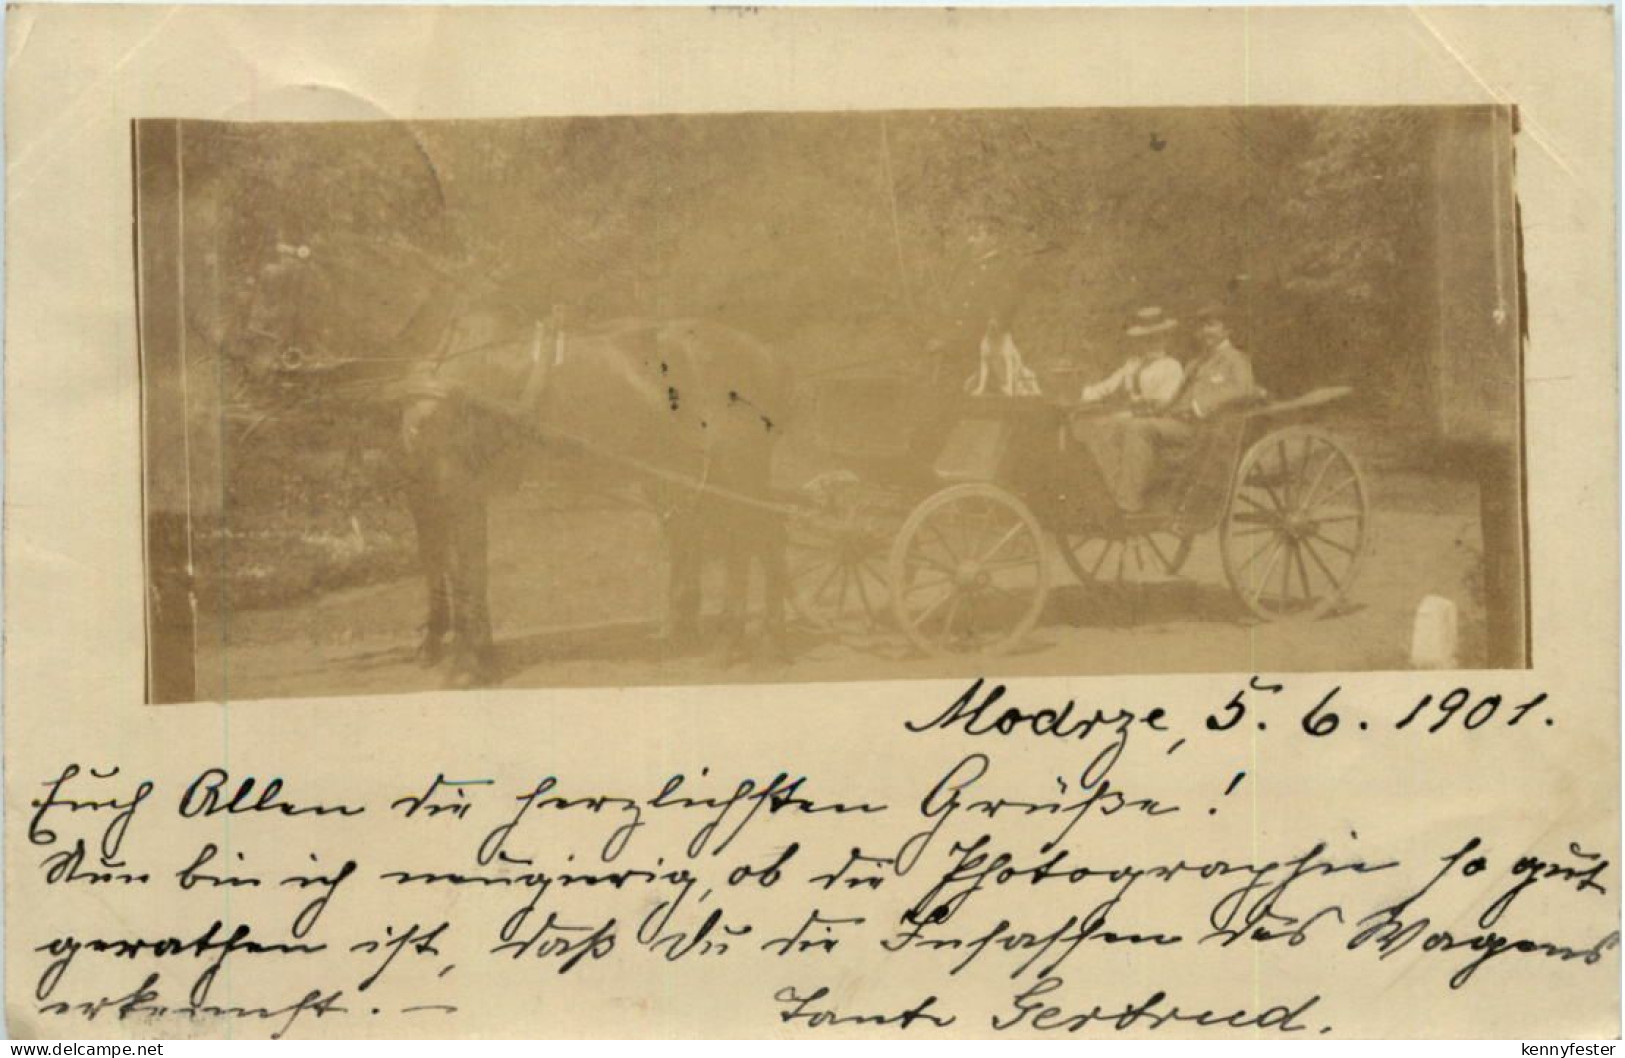 Modrze, 5. 6. 1901.
Euch Allen die herzlichsten Grüße!
Nun bin ich neugierig, ob die Photographie so gut
gerathen ist, daß Du die Insassen des Wagens
erkennst. —
Tante Gertrud.
delcampe.net
kennyfester